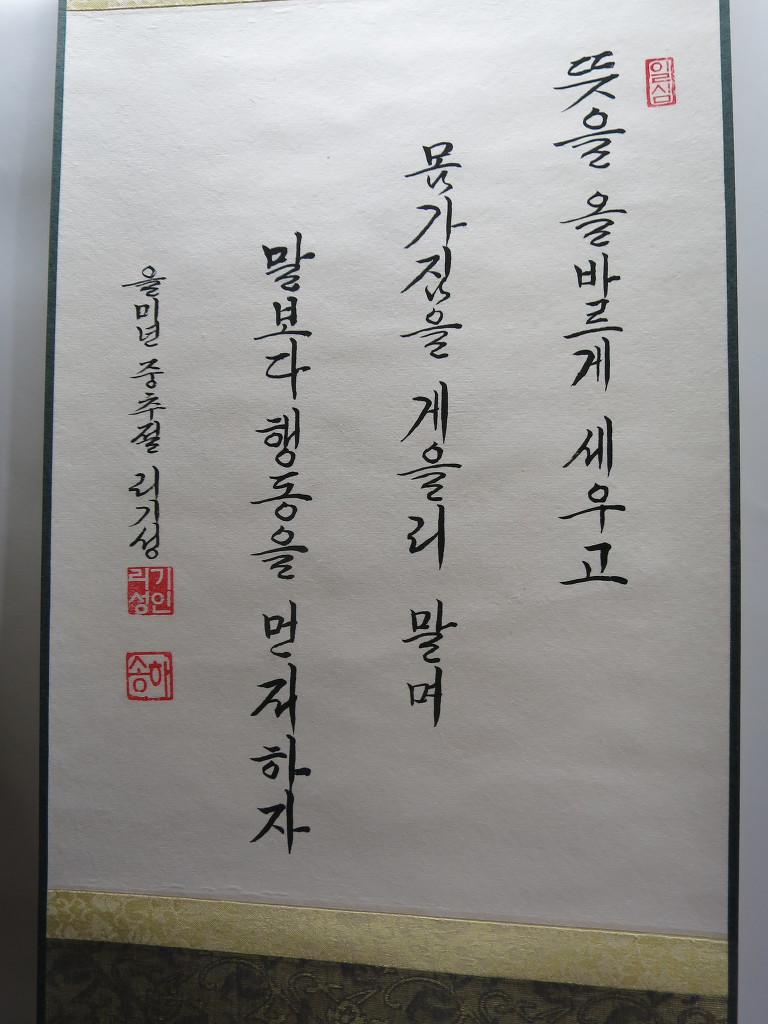 일심
뜻을 올바르게 세우고
몸가짐을 게을리 말며
말보다 행동을 먼저하자
을미년 중추절 리기성
리기성인
송하